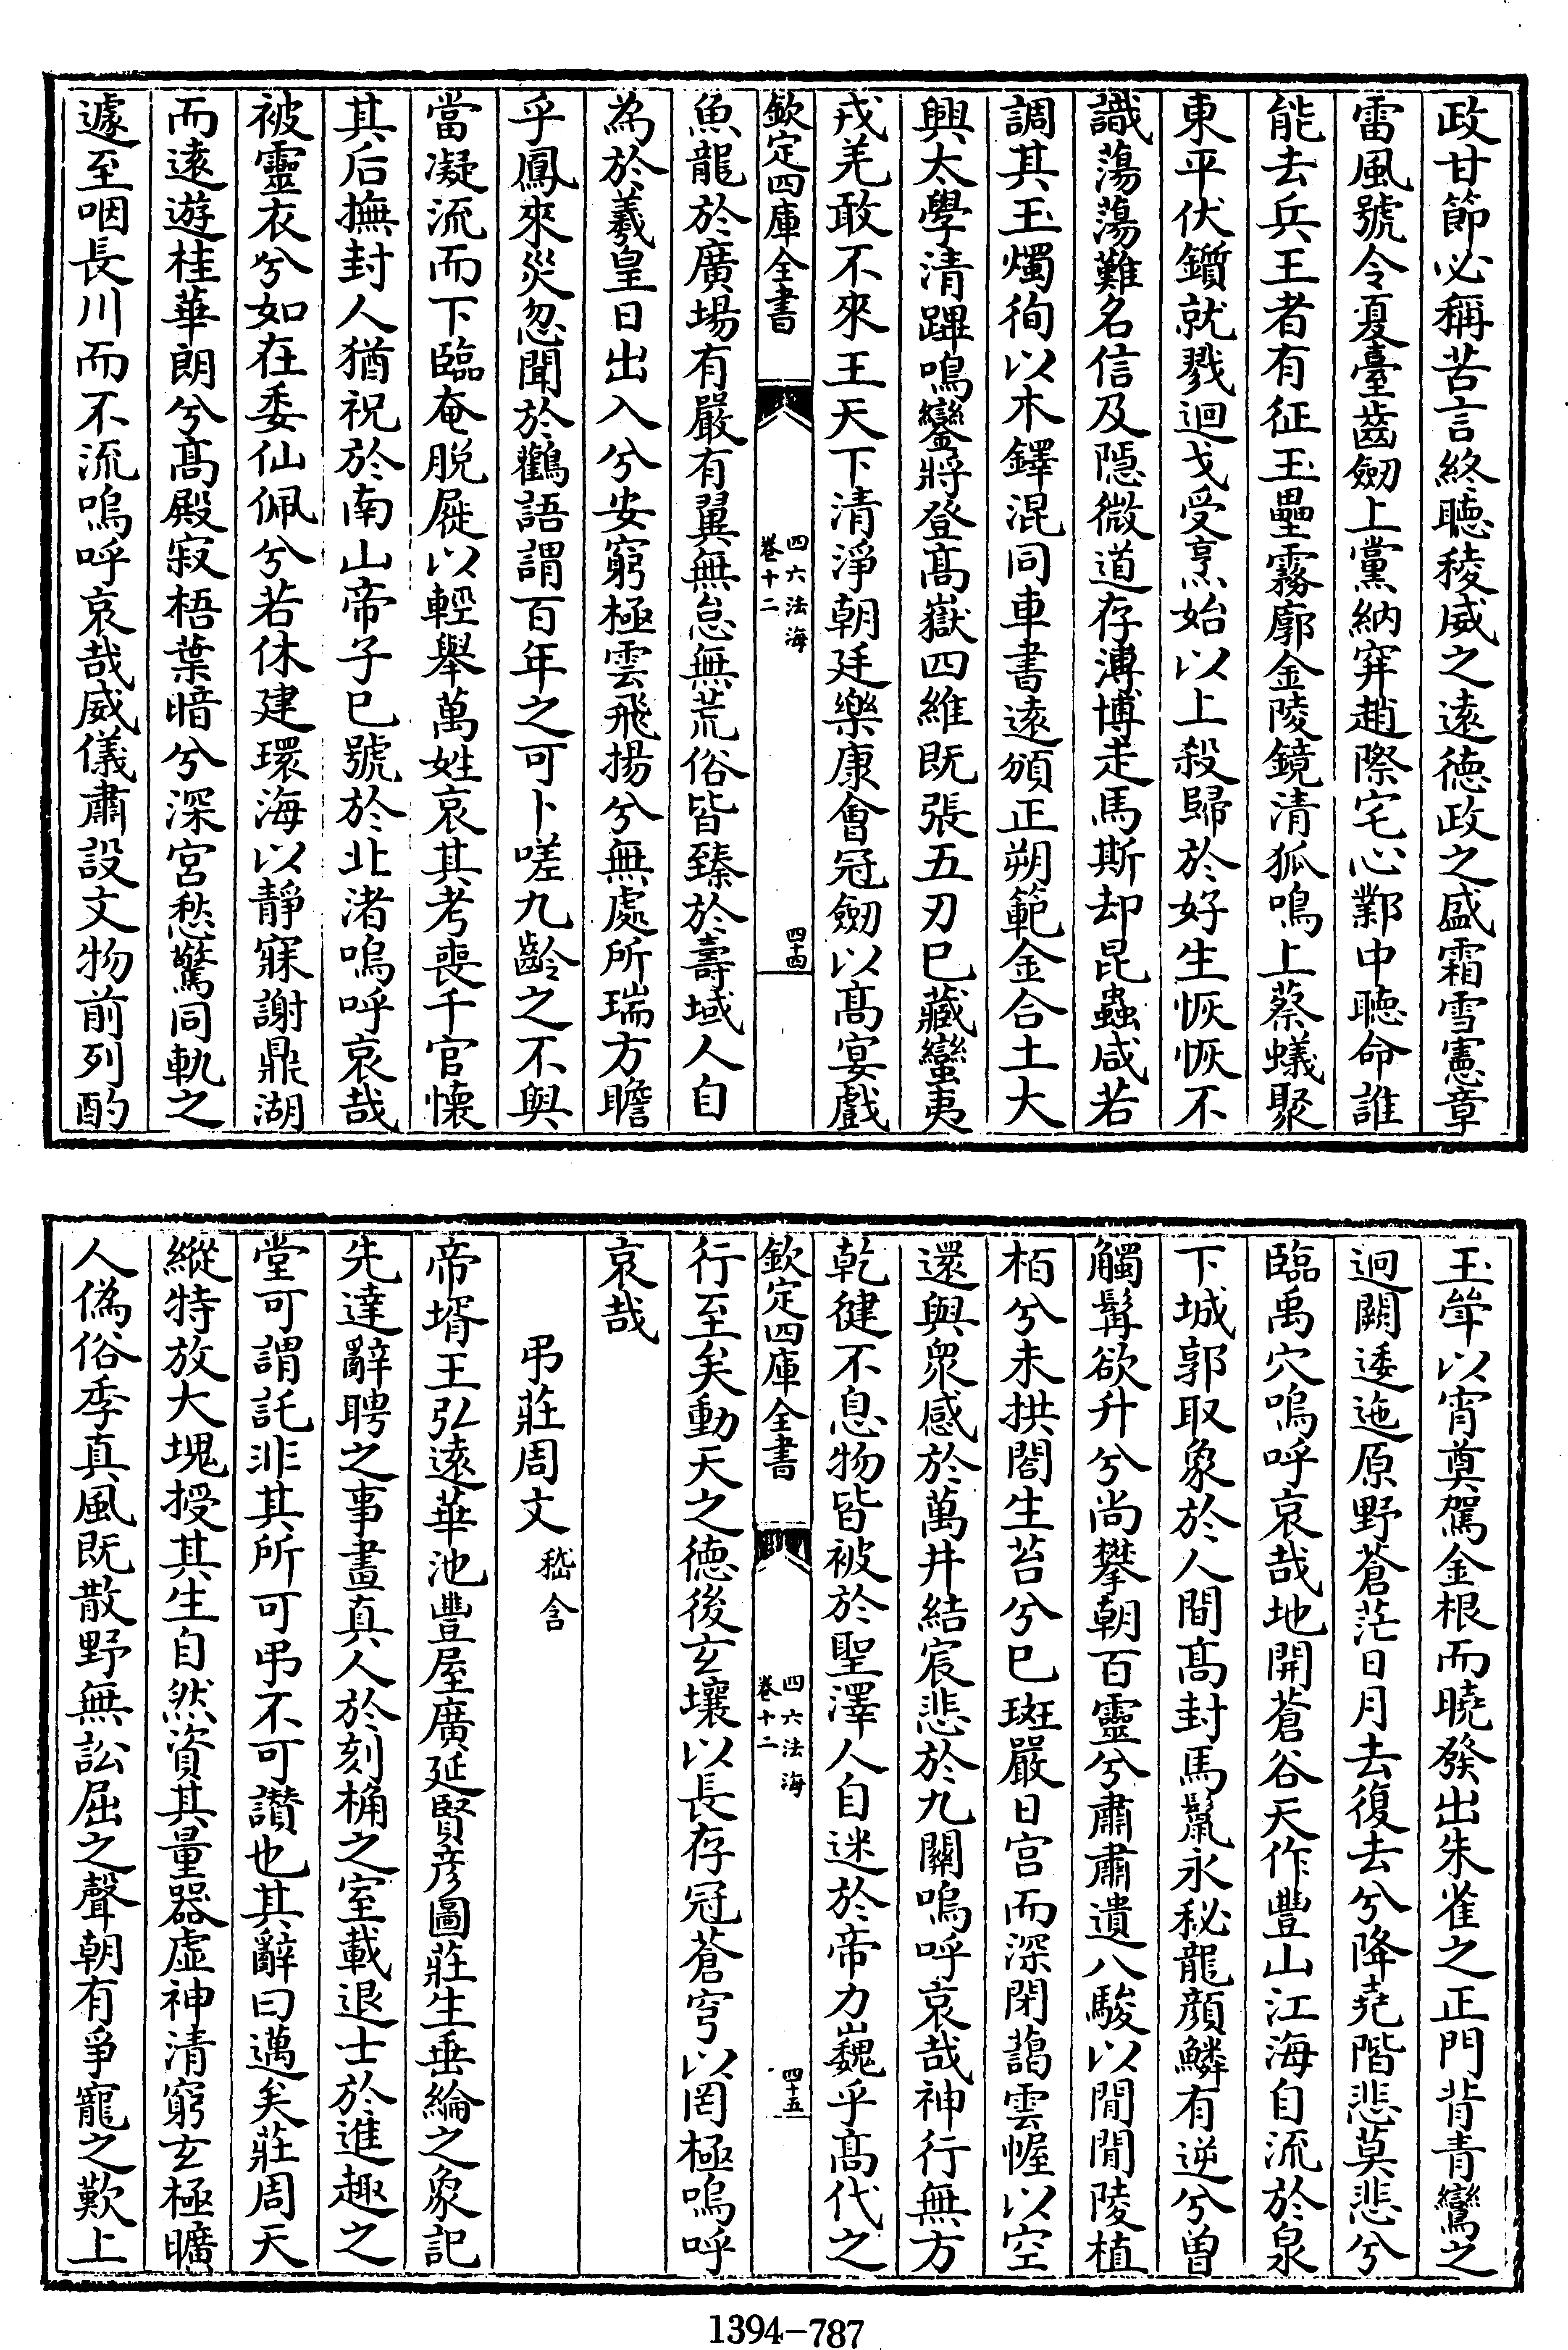 政甘節必稱苦言終聽稜威之遠德政之盛霜雪憲章
雷風號令夏臺齒劒上黨納穽趙際宅心鄴中聽命誰
能去兵王者有征玉壘霧廓金陵鏡清狐鳴上蔡蟻聚
東平伏鑕就戮迴戈受烹始以上殺歸於好生恢恢不
識蕩蕩難名信及隱微道存溥博走馬斯却昆蟲咸若
調其玉燭徇以木鐸混同車書遠頒正朔範金合土大
興太學清蹕鳴鑾將登髙嶽四維既張五刃已藏蠻夷
戎羌敢不來王天下清淨朝廷樂康會冠劒以髙宴戲
欽定四庫全書
四六法海
卷十二
四十四
魚龍於廣場有嚴有翼無怠無荒俗皆臻於壽域人自
為於羲皇日出入兮安窮極雲飛揚兮無處所瑞方瞻
乎鳳來災忽聞於鸛語謂百年之可卜嗟九齡之不與
當凝流而下臨奄脫屣以輕舉萬姓哀其考喪千官懷
其后撫封人猶祝於南山帝子已號於北渚嗚呼哀哉
被靈衣兮如在委仙佩兮若休建環海以靜寐謝鼎湖
而遠遊桂華朗兮髙殿寂梧葉暗兮深宮愁驚同軌之
遽至咽長川而不流嗚呼哀哉威儀肅設文物前列酌
玉斝以宵奠駕金根而曉發出朱雀之正門背青鸞之
迥闕逶迤原野蒼茫日月去復去兮降堯階悲莫悲兮
臨禹穴嗚呼哀哉地開蒼谷天作豐山江海自流於泉
下城郭取象於人間髙封馬鬣永秘龍顔鱗有逆兮曾
觸髯欲升兮尚攀朝百靈兮肅肅遺八駿以閒閒陵植
栢兮未拱閤生苔兮已斑嚴日宫而深閉藹雲幄以空
還與衆感於萬井結宸悲於九關嗚呼哀哉神行無方
乾健不息物皆被於聖澤人自迷於帝力巍乎髙代之
欽定四庫全書
四六法海
卷十二
四十五
行至矣動天之德後玄壤以長存冠蒼穹以罔極嗚呼
哀哉
弔莊周文 嵇含
帝壻王弘遠華池豐屋廣延賢彥圖莊生垂綸之象記
先達辭聘之事畫真人於刻桷之室載退士於進趣之
堂可謂託非其所可弔不可讃也其辭曰邁矣莊周天
縱特放大塊授其生自然資其量器虛神清窮玄極曠
人偽俗季真風既散野無訟屈之聲朝有爭寵之歎上
1394-787